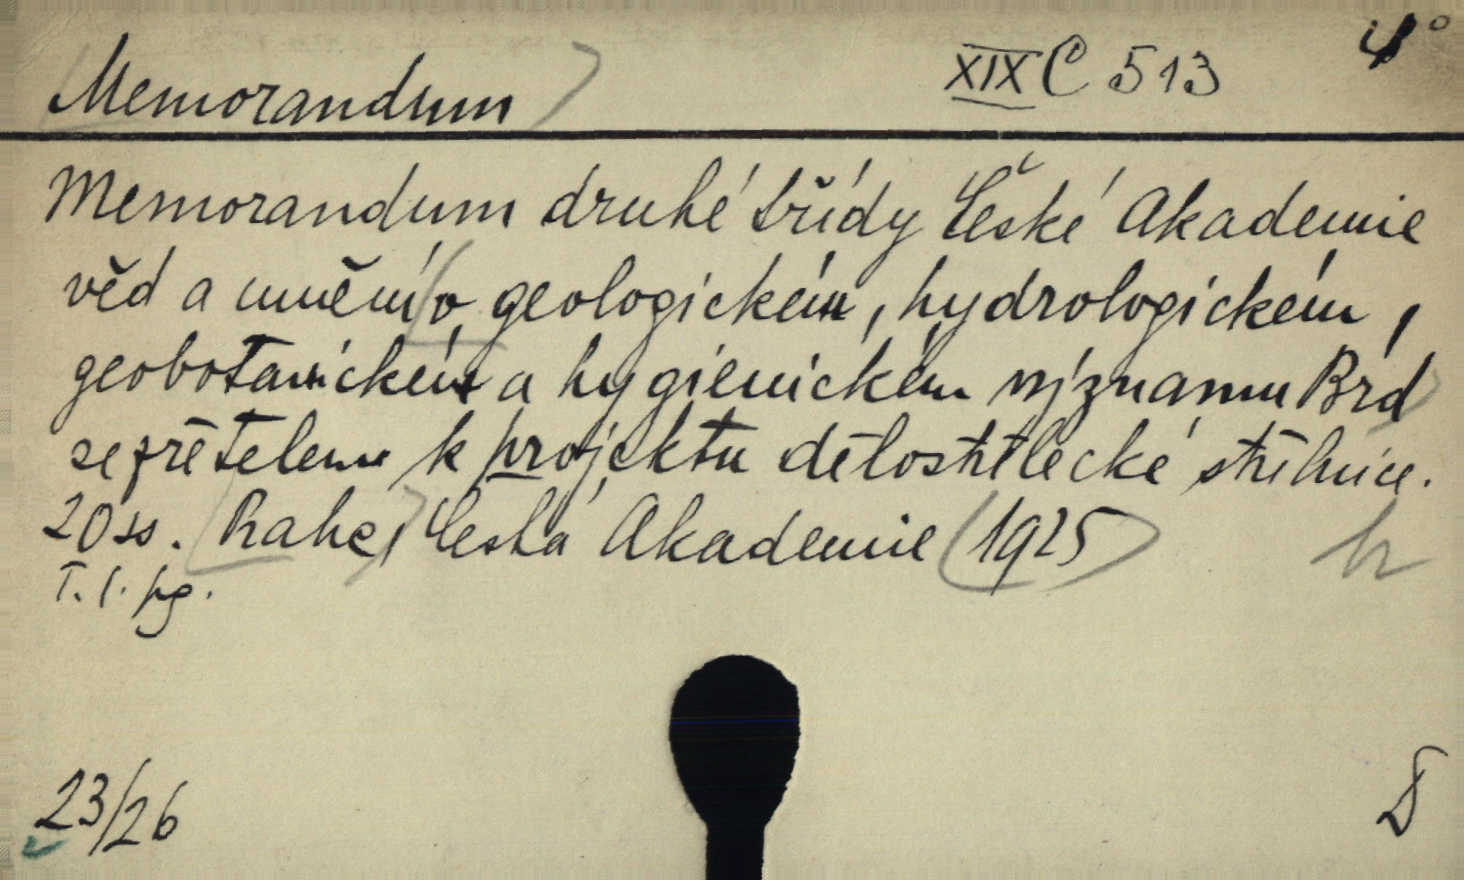 Memorandum XIX C 513 4°
Memorandum druhé třídy České Akademie
věd a umění o geologickém, hydrologickém,
geobotanickém a hygienickém významu Brd
se zřetelem k projektu dělostřelecké střelnice.
20 ss. Praha, Česká Akademie 1925
T. l. pg.
23/26